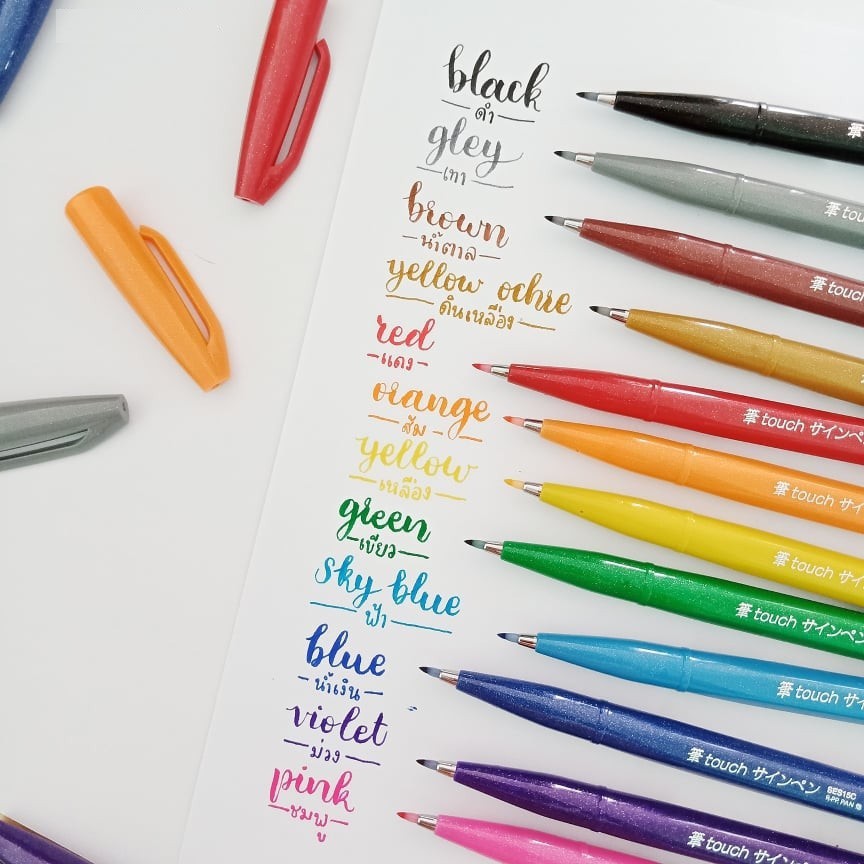 black
ดำ
gley
เทา
brown
น้ำตาล
yellow ochre
ดินเหลือง
red
แดง
orange
ส้ม
yellow
เหลือง
green
เขียว
sky blue
ฟ้า
blue
น้ำเงิน
violet
ม่วง
pink
ชมพู
筆
筆tou
筆touc
筆touch サインペ
筆touch サイ
筆touch サイ
筆touch サインペ
筆touch サ
筆touch サインペン SES15C
筆touch サイン
筆tou